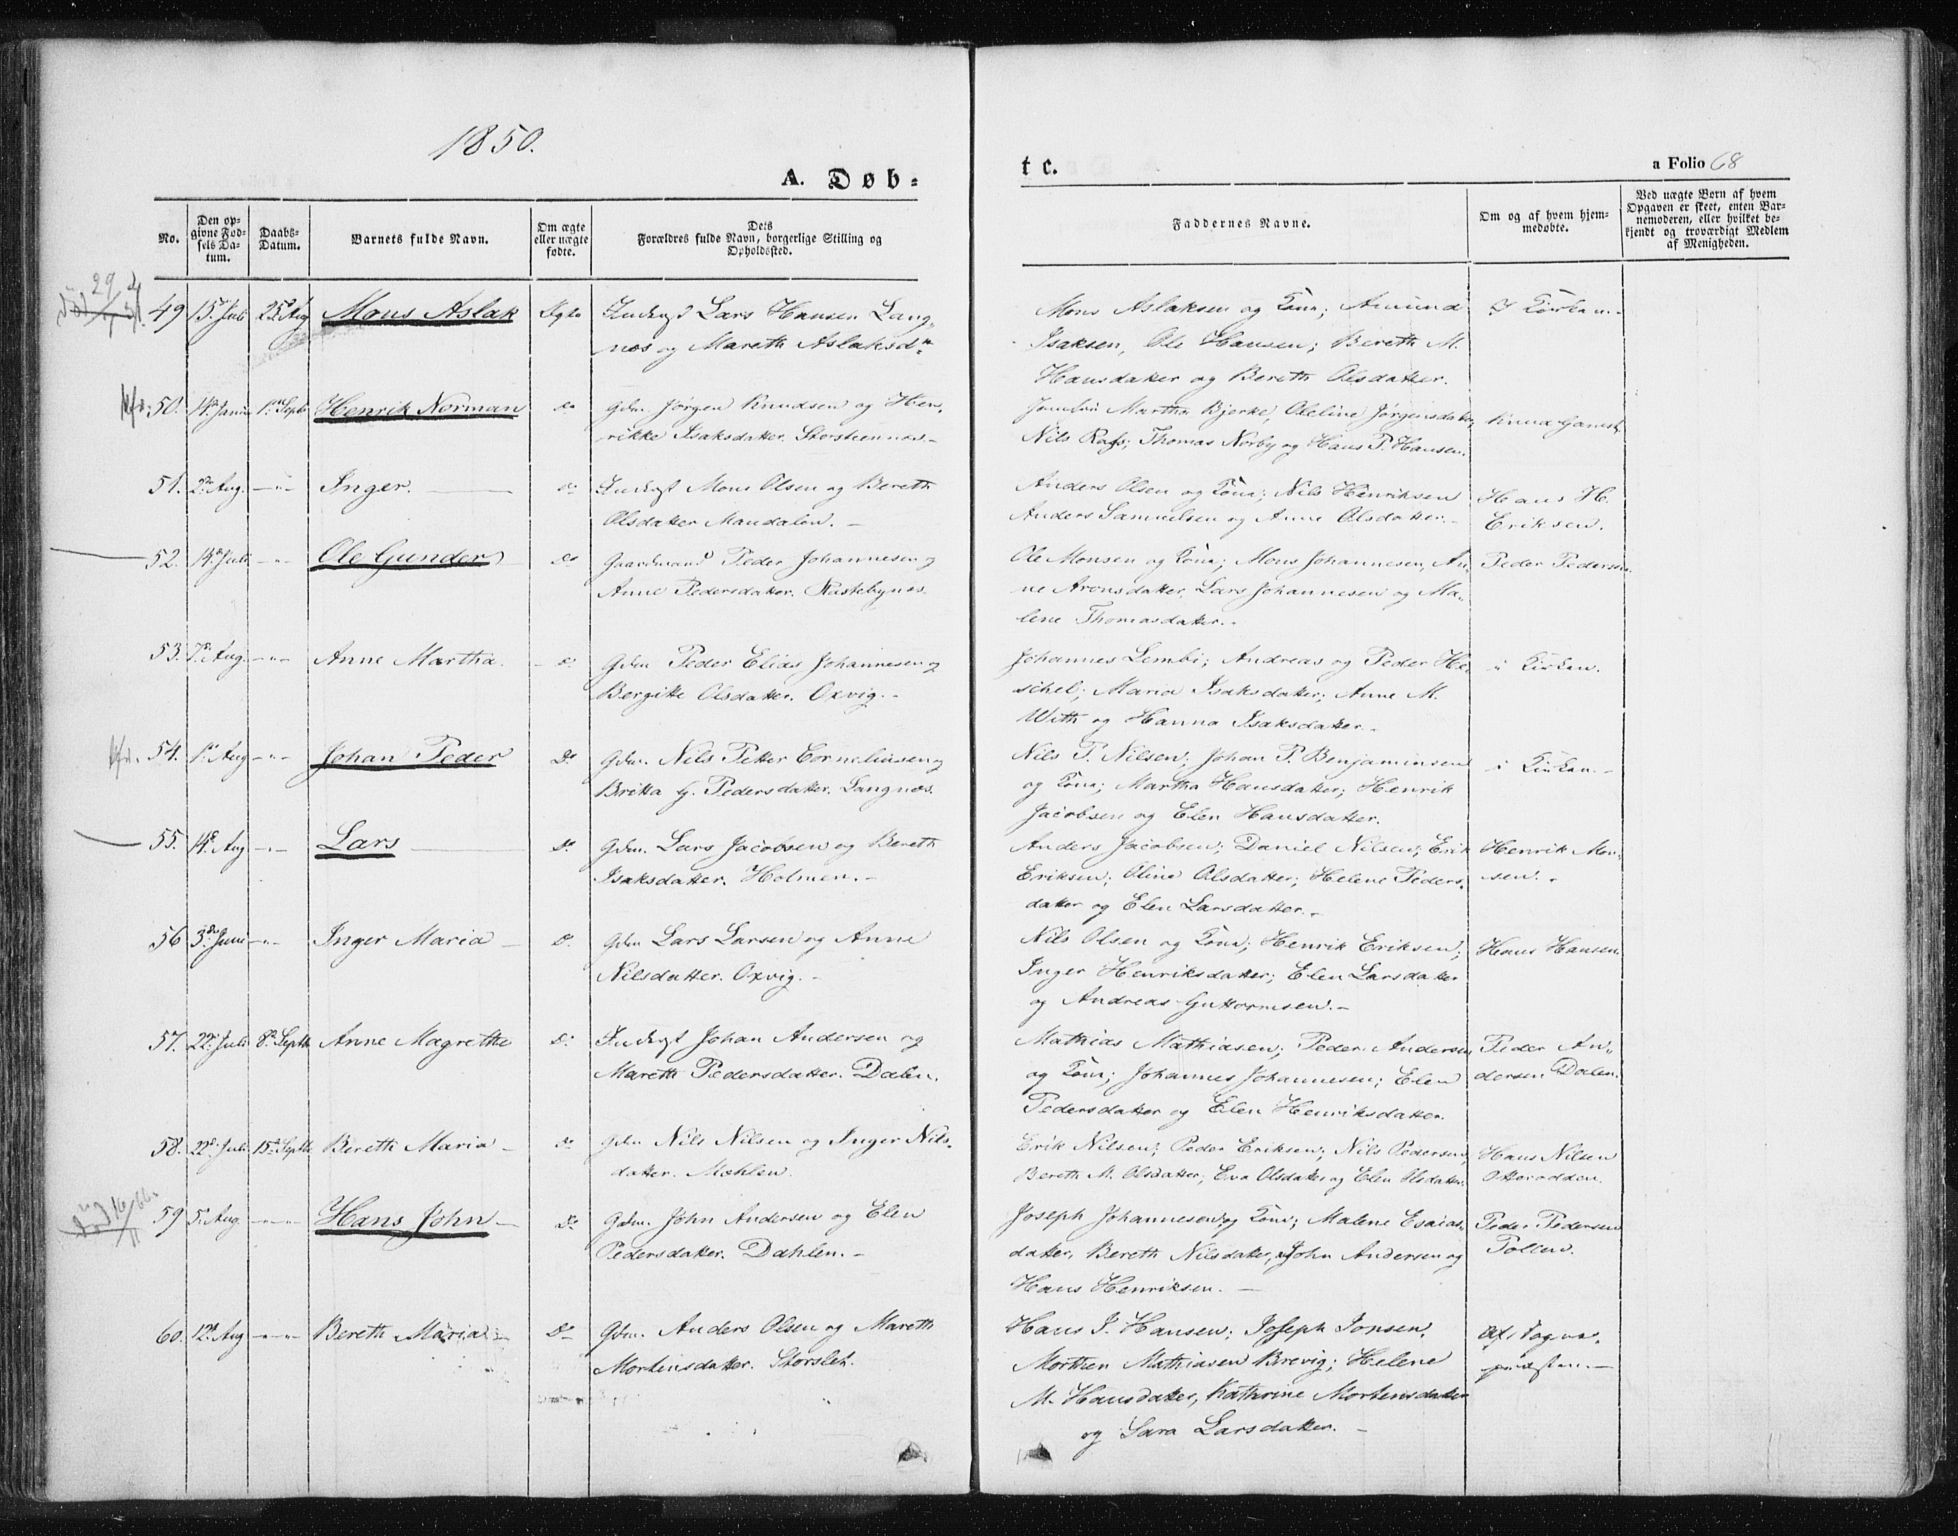 1850.
A. Døb-
No.
Den op-
givne Fød-
sels Da-
tum.
Daabs-
Datum.
Barnets fulde Navn.
Om ægte
eller uægte
fødte.
Dets
Forældres fulde Navn, borgerlige Stilling og
Opholdssted.
49 15 Juli 25 Aug Mons Aslak Ægte Lars Hansen Lang-
nes og Mareth Aslaksd
50. 14 Juni 1 Septb Henrik Norman do Gdm. Jørgen Knudsen og Hen-
rikke Isaksdatter. Storsteennæs
51. 2 Aug. — " — Inger. do Mons Olsen og Bereth
Olsdatter Mandalen. —
52. 14 Juli — " — Ole Gunder do Gaardmand Peder Johannesen og
Anne Pedersdatter. Rastebynes
53. 7 Aug. — " — Anne Martha. do Gdm Peder Elias Johannesen og
Bergitte Olsdatter. Oxvig. —
54. 1 Aug — " — Johan Peder Do Gdm. Nils Petter Corneliusen og
Britta g. Pedersdatter. Langnæs.
55. 14 Aug — " — Lars Do Gdm. Lars Jacobsen og Bereth
Isaksdatter. Holmen. —
56 3 Juni — " — Inger Maria Do Gdm Lars Larsen og Anne
Nilsdatter. Oxvig. —
57. 22 Juli 8 Septb Anne Magrethe Do Johan Andersen og
Mareth Pedersdatter. Dalen.
58. 22 Juli 15 Septb Bereth Maria Do Gdm Nils Nilsen og Inger Nils-
datter. Mohlen.
59 5 Aug — " — Hans John Do Gdm. John Andersen og Elen
Pedersdatter. Dahlen. —
60. 12 Aug — " — Bereth Maria Do Gdm. Anders Olsen og Mareth
Mortensdatter. Storslet.
te.
a Folio 68
Faddernes Navne.
Om og af hvem hjem-
medøbte.
Ved uægte Børn af hvem
Opgaven er skeet, enten Bar-
nemoderen, eller hvilket be-
kjendt og troværdigt Medlem
af Menigheden.
Mons Aslaksen og Kona; Amund I Kirken. —
Isaksen, Ole Hansen; Bereth M.
Hansdatter og Bereth Olsdatter.
Jomfru Martha Bjerke, Oleline Jørgensdatter,
Nils Rafs; Thomas Norby og Hans P. Hansen. Knud
Anders Olsen og Kona; Nils Henriksen Hans H.
Anders Samuelsen og Anne Olsdatter. — Eriksen.
Ole Monsen og Kona; Mons Johannesen, An- Peder Pedersen
ne Aronsdatter, Lars Johannesen og Ma-
lene Thomasdatter. —
Johannes Lembi; Andreas og Peder He- i Kirken.
schel; Maria Isaksdatter; Anne M.
With og Hanna Isaksdatter. —
Nils P. Nilsen; Johan P. Benjaminsen i Kirken. —
og Kona; Martha Hansdatter; Henrik
Jacobsen og Elen Hansdatter.
Anders Jacobsen; Daniel Nilsen; Erik Henrik Mon-
Eriksen; Oline Olsdatter; Helene Peders- sen. —
datter og Elen Larsdatter. —
Nils Olsen og Kona; Henrik Eriksen; Hans Hansen
Inger Henriksdatter; Elen Larsdatter
og Andreas Guttormsen. —
Mathias Mathiasen; Peder Andersen Peder An-
og Kona; Johannes Johannesen; Elen dersen Dalen.
Pedersdatter og Elen Henriksdatter.
Erik Nilsen; Peder Eriksen; Nils Pedersen, Hans Nilsen
Bereth M. Olsdatter; Eva Olsdatter og Elen Olsdatter. Otterodden.
Joseph Johannesen og Kona; Malene Esaias- Peder Pedersen
datter, Bereth Nilsdatter, John Andersen og Pollen.
Hans Henriksen. —
Hans J. Hansen; Joseph Jonsen, Af Sogne-
Morthen Mathiasen Brevig; Helene præsten. —
M. Hansdatter, Kathrine Mortensdatter
og Sara Larsdatter. —